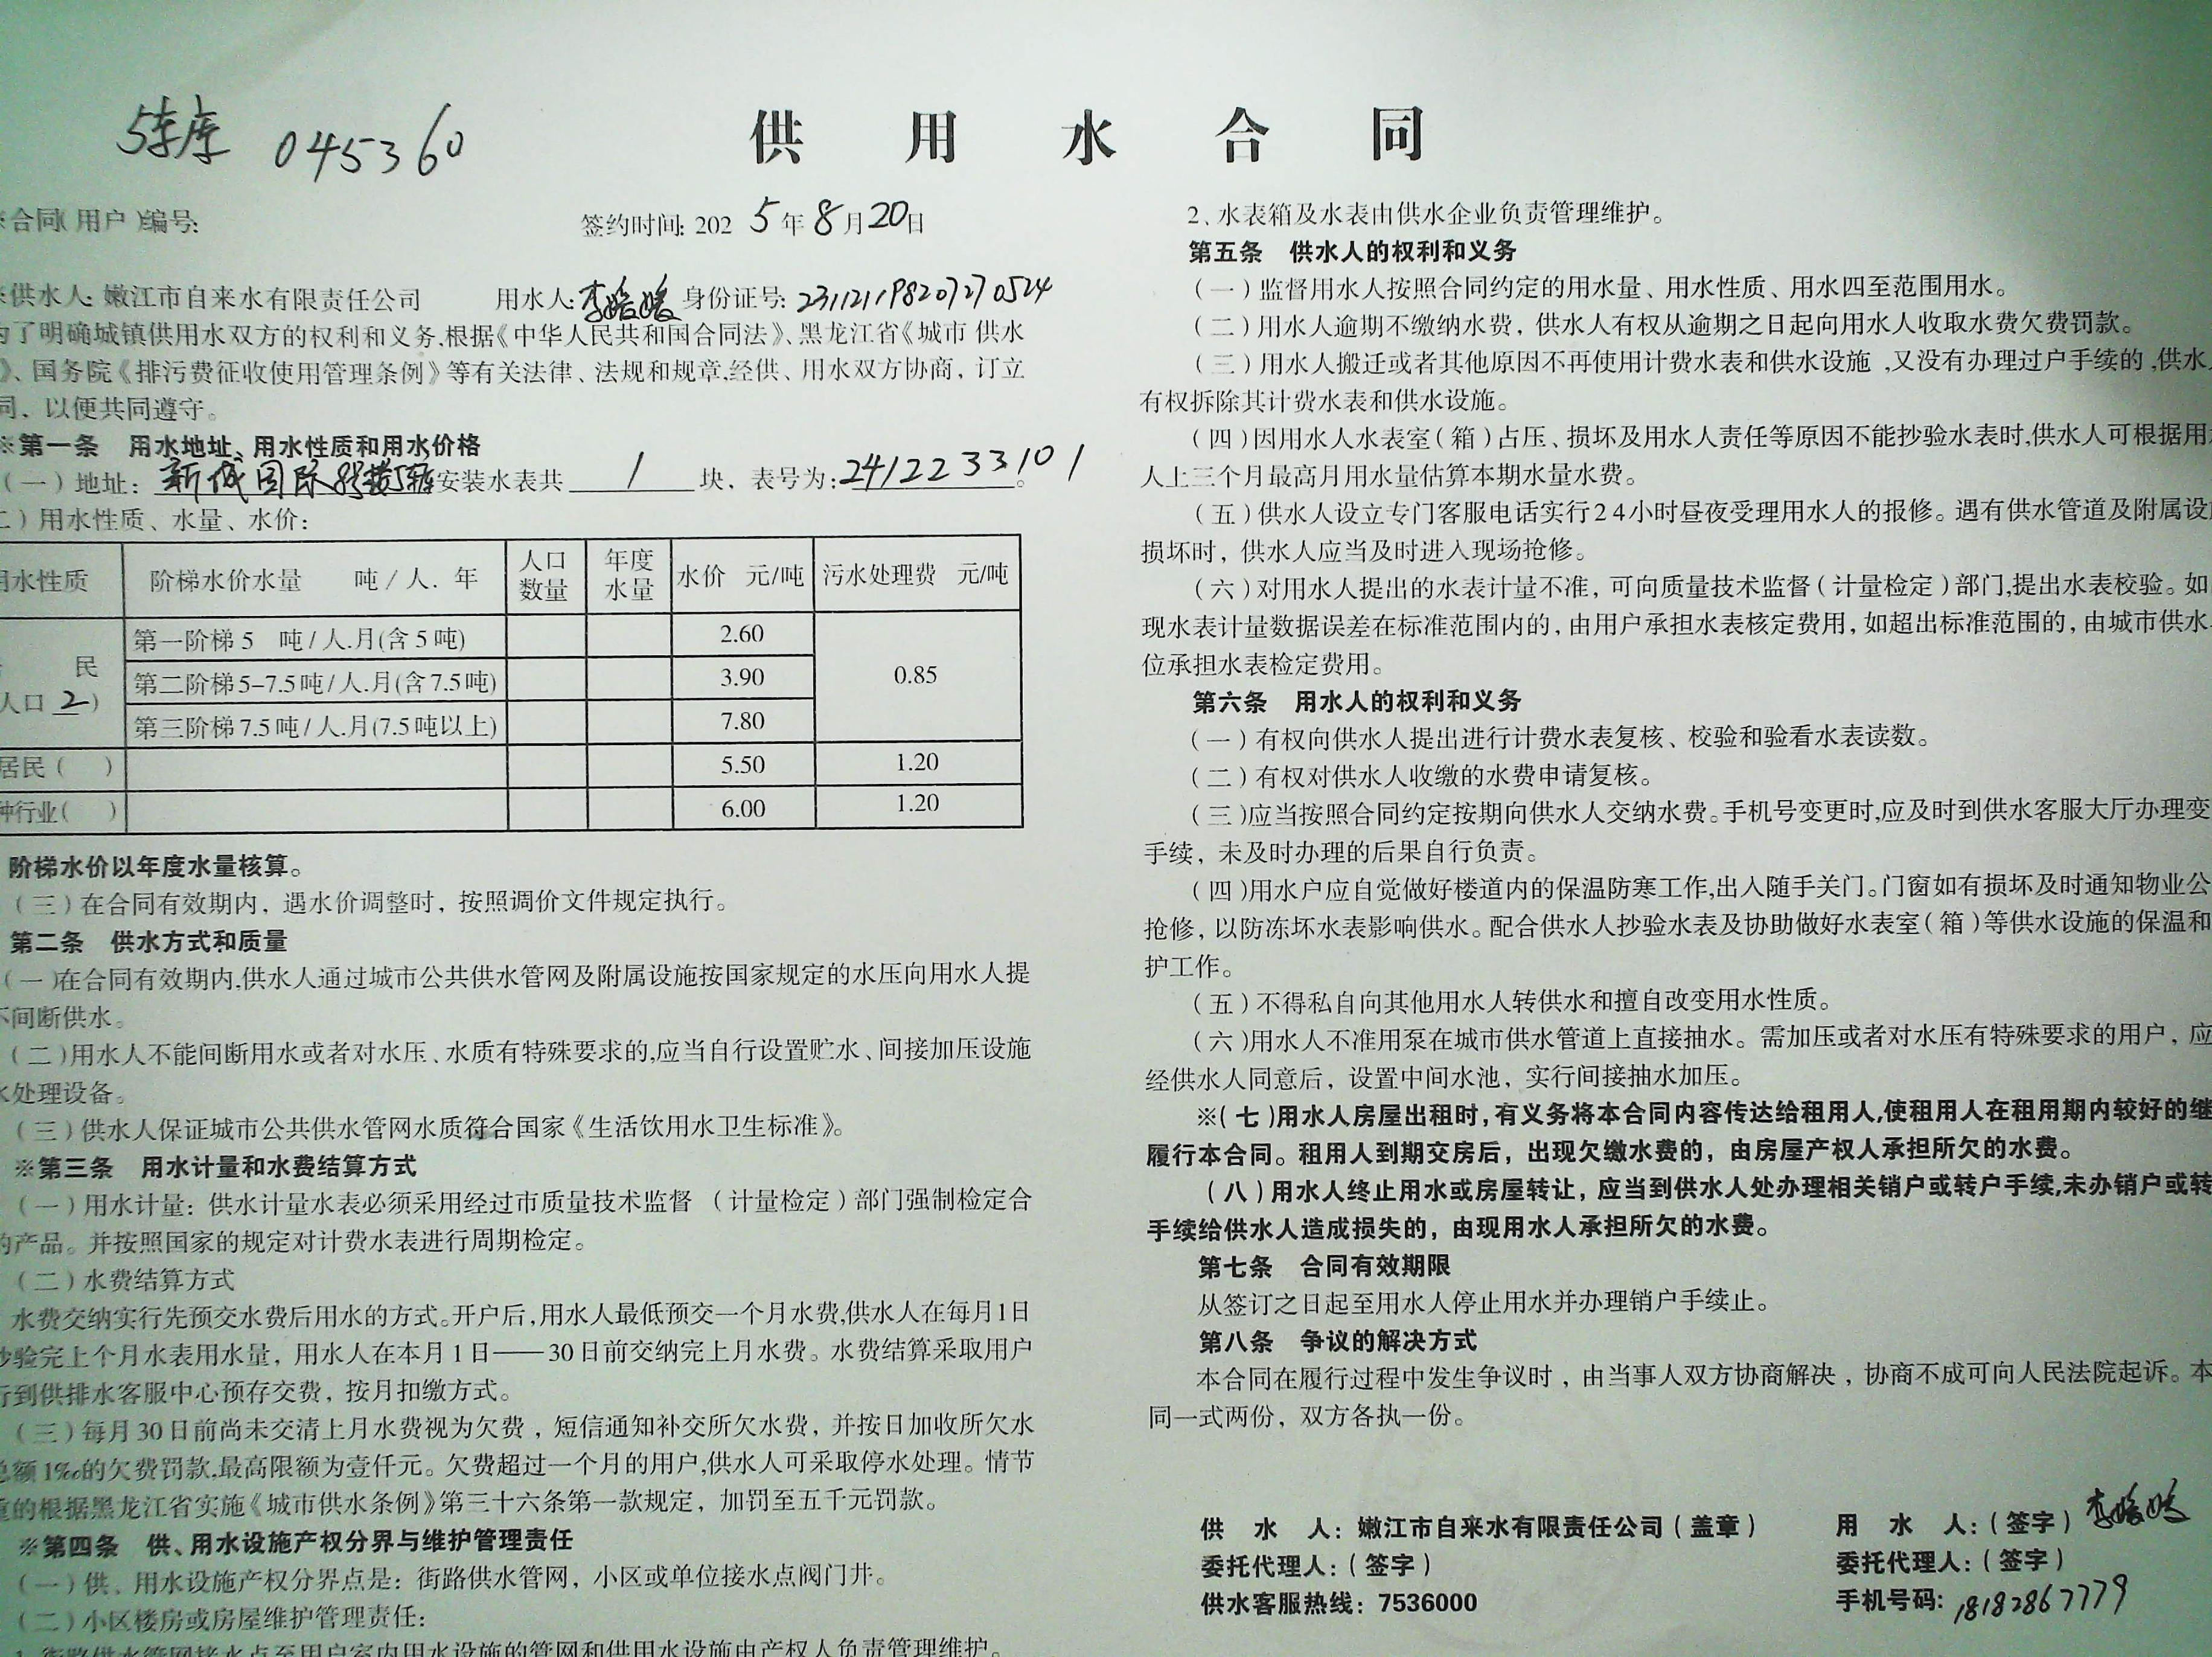 045360
供用水合同
合同(用户)编号:
签约时间: 2025年8月20日
供水人: 嫩江市自来水有限责任公司 用水人: 身份证号: 231121198207270524
了明确城镇供用水双方的权利和义务,根据《中华人民共和国合同法》、黑龙江省《城市 供水
》、国务院《排污费征收使用管理条例》等有关法律、法规和规章,经供、用水双方协商，订立
同，以便共同遵守。
※第一条 用水地址、用水性质和用水价格
(一)地址: 新城国际 安装水表共 1 块，表号为: 2412233101。
)用水性质、水量、水价:
用水性质 阶梯水价水量 吨/人.年 人口数量 年度水量 水价 元/吨 污水处理费 元/吨
民
人口 2 )
第一阶梯 5 吨/人.月(含5吨) 2.60 0.85
第二阶梯5-7.5吨/人.月(含7.5吨) 3.90
第三阶梯7.5吨/人.月(7.5吨以上) 7.80
居民( ) 5.50 1.20
种行业( ) 6.00 1.20
阶梯水价以年度水量核算。
(三)在合同有效期内，遇水价调整时，按照调价文件规定执行。
第二条 供水方式和质量
(一)在合同有效期内,供水人通过城市公共供水管网及附属设施按国家规定的水压向用水人提
不间断供水。
(二)用水人不能间断用水或者对水压、水质有特殊要求的,应当自行设置贮水、间接加压设施
水处理设备。
(三)供水人保证城市公共供水管网水质符合国家《生活饮用水卫生标准》。
※第三条 用水计量和水费结算方式
(一)用水计量：供水计量水表必须采用经过市质量技术监督 (计量检定)部门强制检定合
的产品。并按照国家的规定对计费水表进行周期检定。
(二)水费结算方式
水费交纳实行先预交水费后用水的方式。开户后,用水人最低预交一个月水费,供水人在每月1日
抄验完上个月水表用水量，用水人在本月1日——30日前交纳完上月水费。水费结算采取用户
行到供排水客服中心预存交费，按月扣缴方式。
(三)每月30日前尚未交清上月水费视为欠费，短信通知补交所欠水费，并按日加收所欠水
总额1‰的欠费罚款,最高限额为壹仟元。欠费超过一个月的用户,供水人可采取停水处理。情节
重的根据黑龙江省实施《城市供水条例》第三十六条第一款规定，加罚至五千元罚款。
※第四条 供、用水设施产权分界与维护管理责任
(一)供、用水设施产权分界点是：街路供水管网，小区或单位接水点阀门井。
(二)小区楼房或房屋维护管理责任:
1、街路供水管网接水点至用户室内用水设施的管网和供用水设施由产权人负责管理维护。
2、水表箱及水表由供水企业负责管理维护。
第五条 供水人的权利和义务
(一)监督用水人按照合同约定的用水量、用水性质、用水四至范围用水。
(二)用水人逾期不缴纳水费，供水人有权从逾期之日起向用水人收取水费欠费罚款。
(三)用水人搬迁或者其他原因不再使用计费水表和供水设施,又没有办理过户手续的,供水人
有权拆除其计费水表和供水设施。
(四)因用水人水表室(箱)占压、损坏及用水人责任等原因不能抄验水表时,供水人可根据用水
人上三个月最高月用水量估算本期水量水费。
(五)供水人设立专门客服电话实行24小时昼夜受理用水人的报修。遇有供水管道及附属设施
损坏时，供水人应当及时进入现场抢修。
(六)对用水人提出的水表计量不准，可向质量技术监督(计量检定)部门,提出水表校验。如
现水表计量数据误差在标准范围内的，由用户承担水表核定费用，如超出标准范围的，由城市供水
位承担水表检定费用。
第六条 用水人的权利和义务
(一)有权向供水人提出进行计费水表复核、校验和验看水表读数。
(二)有权对供水人收缴的水费申请复核。
(三)应当按照合同约定按期向供水人交纳水费。手机号变更时,应及时到供水客服大厅办理变
手续，未及时办理的后果自行负责。
(四)用水户应自觉做好楼道内的保温防寒工作,出入随手关门。门窗如有损坏及时通知物业公
抢修，以防冻坏水表影响供水。配合供水人抄验水表及协助做好水表室(箱)等供水设施的保温和
护工作。
(五)不得私自向其他用水人转供水和擅自改变用水性质。
(六)用水人不准用泵在城市供水管道上直接抽水。需加压或者对水压有特殊要求的用户，应
经供水人同意后，设置中间水池，实行间接抽水加压。
※(七)用水人房屋出租时，有义务将本合同内容传达给租用人,使租用人在租用期内较好的继
履行本合同。租用人到期交房后，出现欠缴水费的，由房屋产权人承担所欠的水费。
(八)用水人终止用水或房屋转让，应当到供水人处办理相关销户或转户手续,未办销户或转
手续给供水人造成损失的，由现用水人承担所欠的水费。
第七条 合同有效期限
从签订之日起至用水人停止用水并办理销户手续止。
第八条 争议的解决方式
本合同在履行过程中发生争议时，由当事人双方协商解决，协商不成可向人民法院起诉。本
同一式两份，双方各执一份。
供 水 人：嫩江市自来水有限责任公司(盖章) 用 水 人：(签字)
委托代理人：(签字) 委托代理人：(签字)
供水客服热线：7536000 手机号码: 18182867779